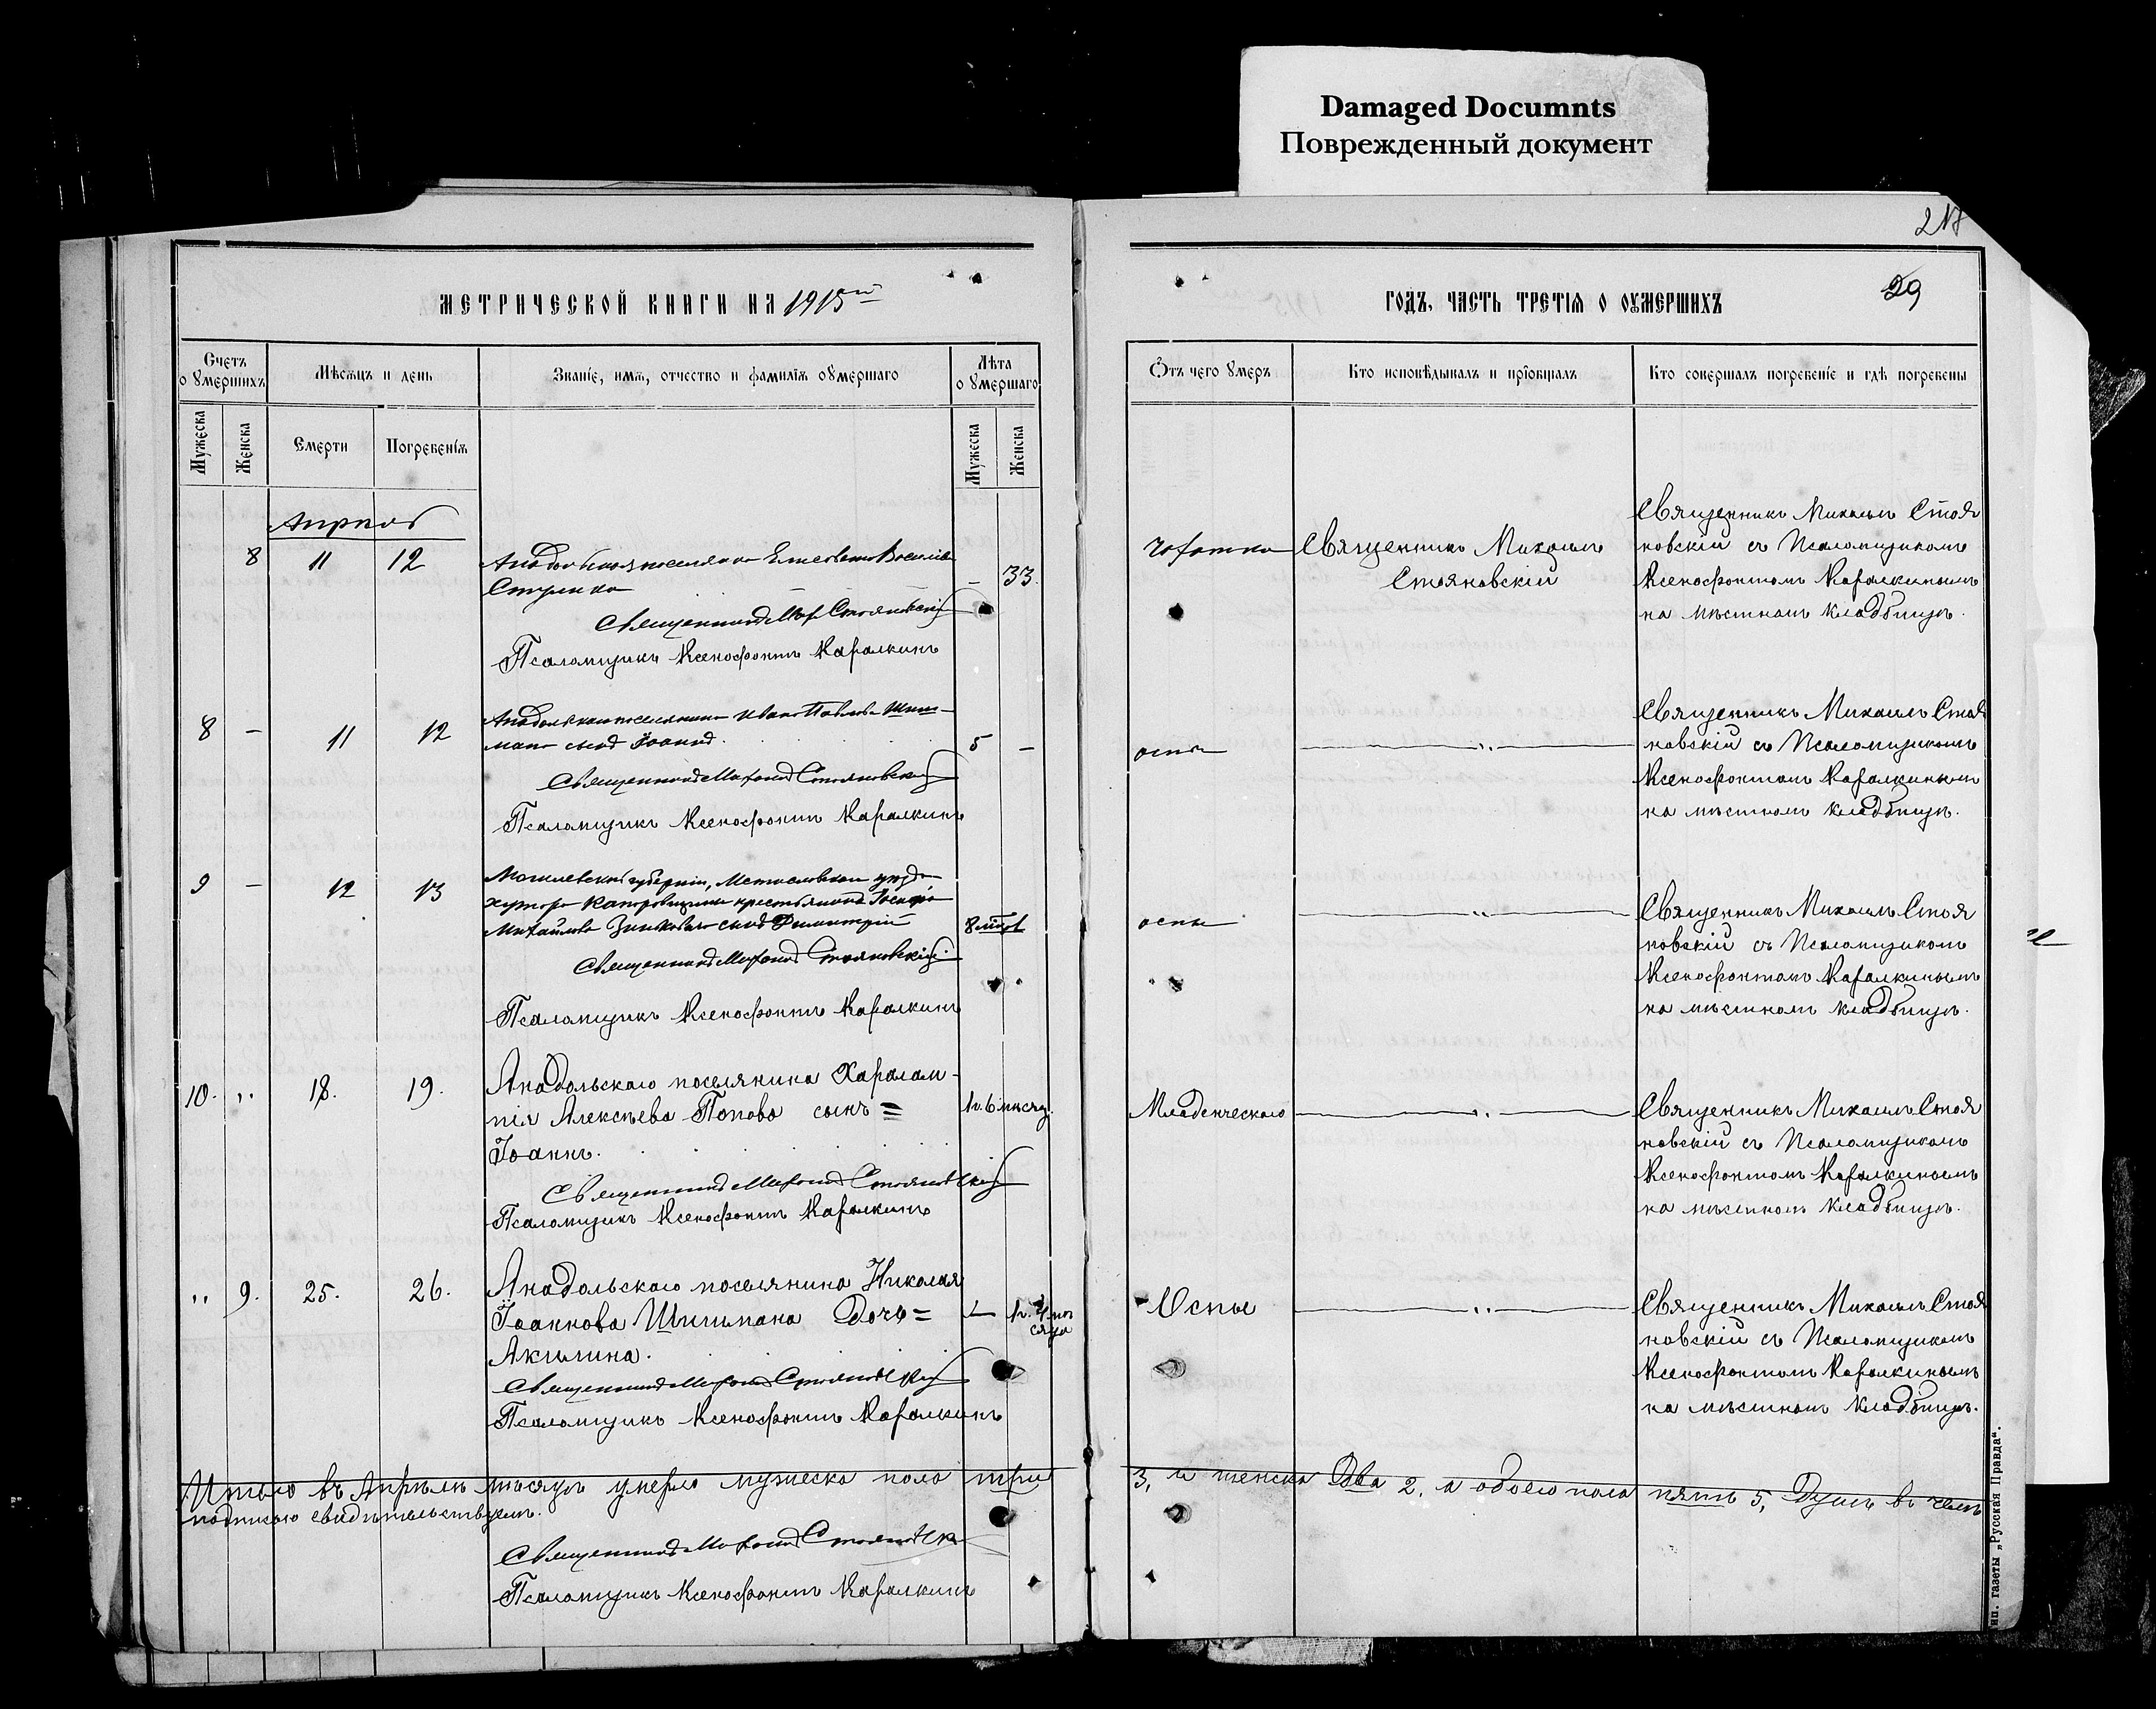 Damaged Documnts
Поврежденный документ
217
29
МЕТРИЧЕСКОЙ КНИГИ НА 1915ый
ГОДЪ, ЧАСТЬ ТРЕТІЯ О ОУМЕРШИХЪ
Счетъ о Умершихъ
Мѣсяцъ и день
Званіе, имя, отчество и фамилія оумершаго
Лѣта о Умершаго
Отъ чего Умеръ
Кто исповѣдывалъ и пріобщалъ
Кто совершалъ погребеніе и гдѣ погребены
Мужеска
Женска
Смерти
Погребенія
Мужеска
Женска
Апрѣль
8 11 12
Стрилка
33.
Священникъ Мих Стояновскій
Псаломщикъ Ксенофонтъ Каралкинъ
чахотка
Священникъ Михаилъ
Стояновскій
Священникъ Михаилъ Стоя
новскій съ Псаломщикомъ
Ксенофонтомъ Каралкинымъ
на мѣстномъ кладбищѣ.
8 – 11 12
Анадольскаго поселянина Ивана Павлова Шиш-
мана сынъ Іоаннъ.
5 –
Священникъ Михаилъ Стояновскій
Псаломщикъ Ксенофонтъ Каралкинъ
оспы
Священникъ Михаилъ Стоя
новскій съ Псаломщикомъ
Ксенофонтомъ Каралкинымъ
на мѣстномъ кладбищѣ.
9 – 12 13
Могилевской губерніи, Мстиславскаго уѣзда
хутора крестьянина
Михайлова сынъ Димитрій
8 мѣс
Священникъ Михаилъ Стояновскій
Псаломщикъ Ксенофонтъ Каралкинъ
оспы
Священникъ Михаилъ Стоя
новскій съ Псаломщикомъ
Ксенофонтомъ Каралкинымъ
на мѣстномъ кладбищѣ.
10. ,, 18. 19.
Анадольскаго поселянина Харалам-
пія Алексѣева Попова сынъ =
Іоаннъ.
6 мѣсяц.
Священникъ Михаилъ Стояновскій
Псаломщикъ Ксенофонтъ Каралкинъ
Младенческаго
Священникъ Михаилъ Стоя
новскій съ Псаломщикомъ
Ксенофонтомъ Каралкинымъ
на мѣстномъ кладбищѣ.
,, 9. 25. 26.
Анадольскаго поселянина Николая
Іоаннова Шишмана Дочь =
Акилина.
Священникъ Михаилъ Стояновскій
Псаломщикъ Ксенофонтъ Каралкинъ
Оспы
Священникъ Михаилъ Стоя
новскій съ Псаломщикомъ
Ксенофонтомъ Каралкинымъ
на мѣстномъ кладбищѣ.
Итого въ Апрѣлѣ мѣсяцѣ умерло мужеска пола три 3, и женска Два 2, а обоего пола пять 5, Душъ въ чемъ
подписью свидѣтельствуемъ.
Священникъ Михаилъ Стояновскій
Псаломщикъ Ксенофонтъ Каралкинъ
тип. газеты „Русская Правда“.